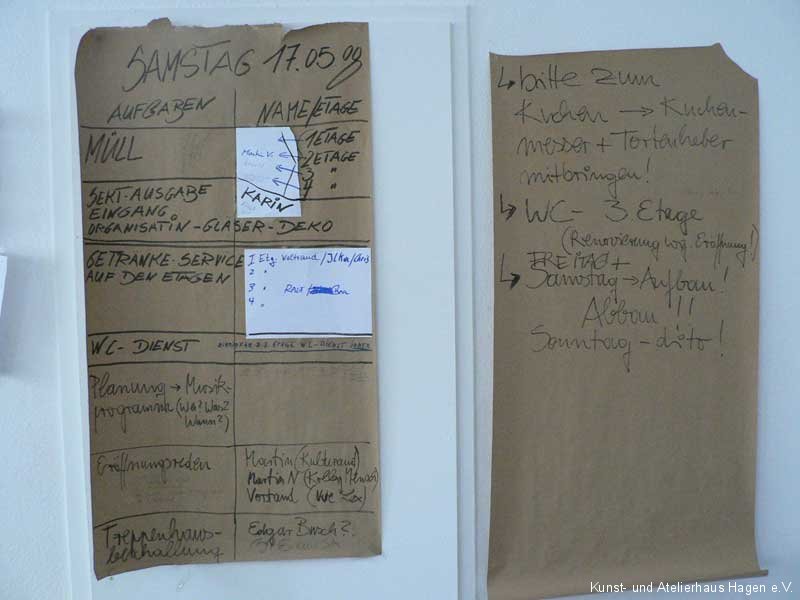 SAMSTAG 17.05.08
AUFGABEN NAME/ETAGE
MÜLL
1 ETAGE
2 ETAGE
3 "
4 "
Martin V.
KARIN
SEKT-AUSGABE
EINGANG
ORGANISATIN-GLÄSER-DEKO
GETRÄNKE-SERVICE
AUF DEN ETAGEN
I Etg. Voltrand/Ilka/Chris
2 "
3 "
4 "
WC-DIENST
Planung → Musik-
programm (Wer? Was?
Wann?)
Eröffnungsreden
Martin (Kulturamt)
Martin N
Vorstand
Treppenhaus-
beschallung
Edgar Busch?
↳ bitte zum
Kuchen → Kuchen-
messer + Tortenheber
mitbringen!
↳ WC - 3. Etage
(Renovierung wg. Eröffnung!)
FREITAG +
↳ Samstag → Aufbau!
Abbau!!
Sonntag - dito!
Kunst- und Atelierhaus Hagen e.V.